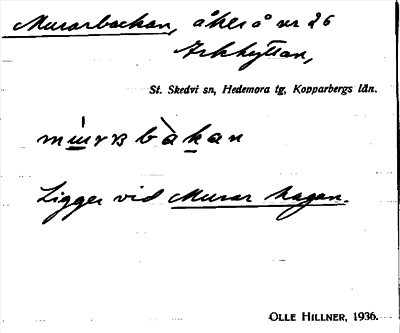 Murarbackan, åker å nr 26
Arkhyttan,
St. Skedvi sn, Hedemora tg, Kopparbergs län.
Ligger vid Murar hagen.
OLLE HILLNER, 1936.